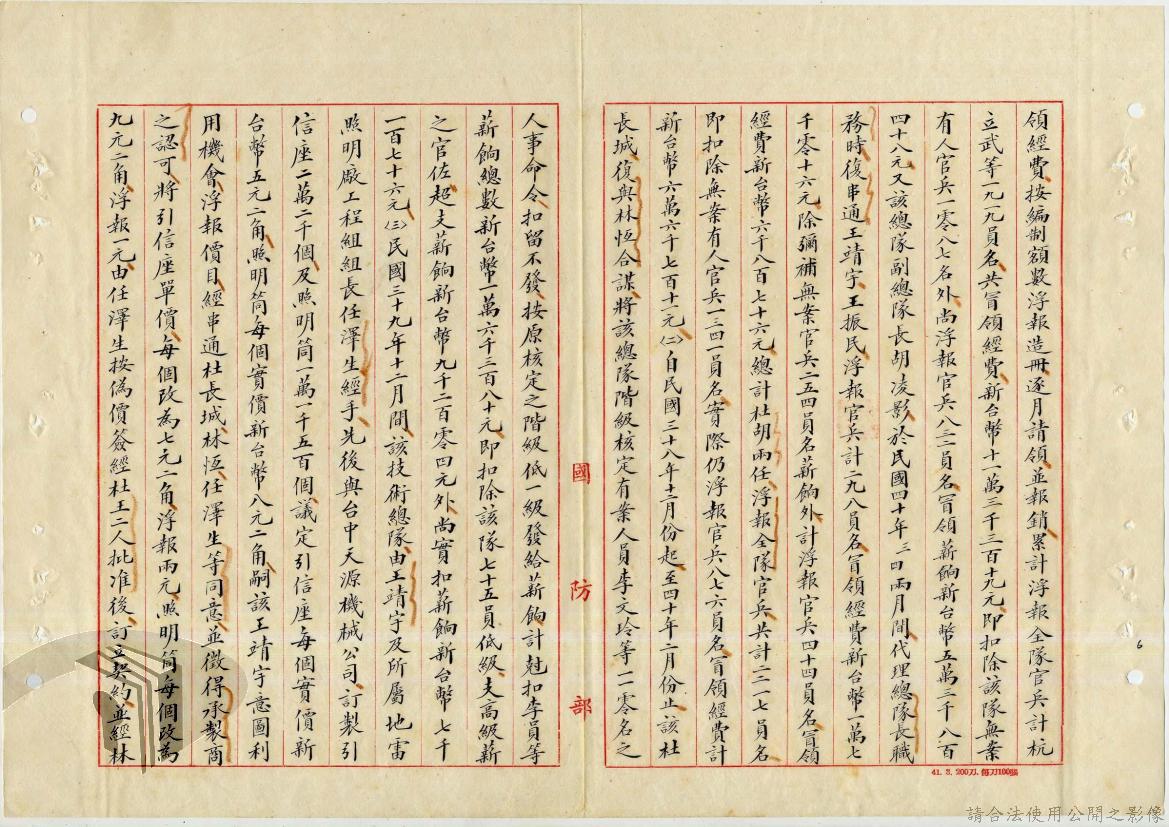 領經費按編制額數浮報造冊逐月請領並報銷累計浮報全隊官兵計杭
立武等一九一九員名共冒領經費新台幣十一萬三千三百十九元即扣除該隊無案
有人官兵一零八七名外尚浮報官兵八三二員名冒領薪餉新台幣五萬三千八百
四十八元又該總隊副總隊長胡凌影於民國四十年三四兩月間代理總隊長職
務時復串通王靖宇王振民浮報官兵計二九八員名冒領經費新台幣一萬七
千零十六元除彌補無案官兵二五四員名薪餉外計浮報官兵四十四員名冒領
經費新台幣六千八百七十六元總計杜胡兩任浮報全隊官兵共計二二一七員名
即扣除無案有人官兵一三四一員名實際仍浮報官兵八七六員名冒領經費計
新台幣六萬六千七百十一元㈡自民國三十八年十二月份起至四十年二月份止該杜
長城復與林恆合謀將該總隊階級核定有案人員李文玲等一一零名之
國防部
人事命令扣留不發按原核定之階級低一級發給薪餉計尅扣李員等
薪餉總數新台幣一萬六千三百八十元即扣除該隊七十五員低級支高級薪
之官佐超支薪餉新台幣九千二百零四元外尚實扣薪餉新台幣七千
一百七十六元㈢民國三十九年十二月間該技術總隊由王靖宇及所屬地雷
照明廠工程組組長任澤生經手先後與台中天源機械公司訂製引
信座二萬二千個及照明筒一萬一千五百個議定引信座每個實價新
台幣五元二角照明筒每個實價新台幣八元二角嗣該王靖宇意圖利
用機會浮報價目經串通杜長城林恆任澤生等同意並徵得承製商
之認可將引信座單價每個改為七元二角浮報兩元照明筒每個改為
九元二角浮報一元由任澤生按偽價簽經杜王二人批准後訂立契約並經林
41. 3. 200刀. 每刀100張
6
請合法使用公開之影像